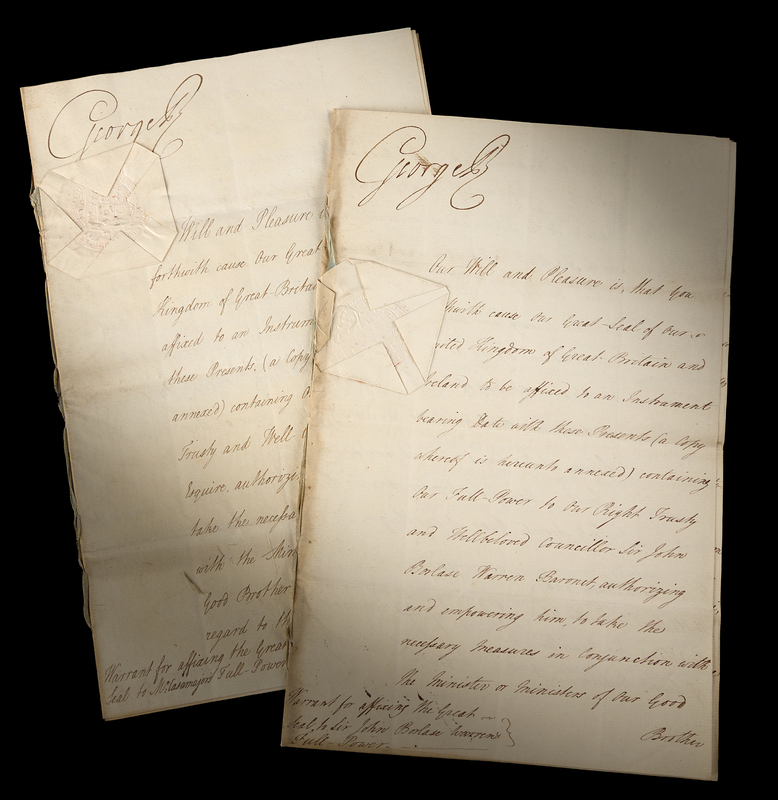 George R
Will and Pleasure is
forthwith cause Our Great
Kingdom of Great-Britain
affixed to an Instrum
these Presents, (a Copy
annexed) containing
Trusty and Well-
Esquire, authorizi
take the necessa
with the Mini
Good Brother
regard to th
Warrant for affixing the Great
Seal to Mr. Casamajor's Full-Power
George R
Our Will and Pleasure is, that you
forthwith cause Our Great-Seal of Our
United Kingdom of Great-Britain and
Ireland to be affixed to an Instrument
bearing Date with these Presents (a Copy
whereof is hereunto annexed) containing
Our Full-Power to Our Right Trusty
and Wellbeloved Councillor Sir John
Borlase Warren Baronet, authorizing
and empowering him, to take the
necessary Measures in Conjunction with
the Minister or Ministers of Our Good
Brother
Warrant for affixing the Great
Seal, to Sir John Borlase Warren's
Full-Power.